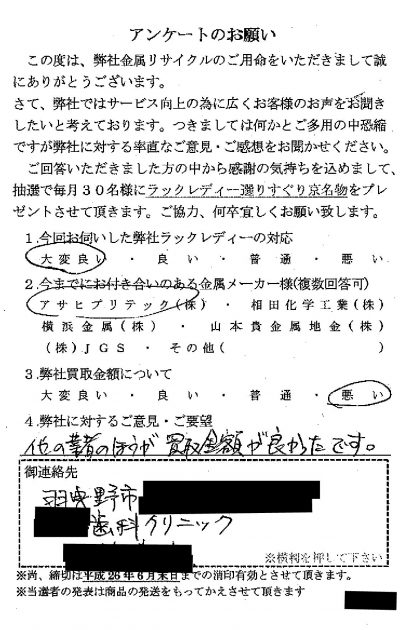 アンケートのお願い
この度は、弊社金属リサイクルのご用命をいただきまして誠
にありがとうございます。
さて、弊社ではサービス向上の為に広くお客様のお声をお聞き
したいと考えております。つきましては何かとご多用の中恐縮
ですが弊社に対する率直なご意見・ご感想をお聞かせください。
ご回答いただきました方の中から感謝の気持ちを込めまして、
抽選で毎月30名様にラックレディー選りすぐり京名物をプレ
ゼントさせて頂きます。ご協力、何卒宜しくお願い致します。
1.今回お伺いした弊社ラックレディーの対応
大変良い ・ 良い ・ 普通 ・ 悪い
2.今までにお付き合いのある金属メーカー様(複数回答可)
アサヒプリテック(株) ・ 相田化学工業(株)
横浜金属(株) ・ 山本貴金属地金(株)
(株)JGS ・ その他( )
3.弊社買取金額について
大変良い ・ 良い ・ 普通 ・ 悪い
4.弊社に対するご意見・ご要望
他の業者のほうが買取金額が良かったです。
御連絡先
羽曳野市
歯科クリニック
※横判を押して下さい
※尚、締切は平成26年6月末日までの消印有効とさせて頂きます。
※当選者の発表は商品の発送をもってかえさせて頂きます